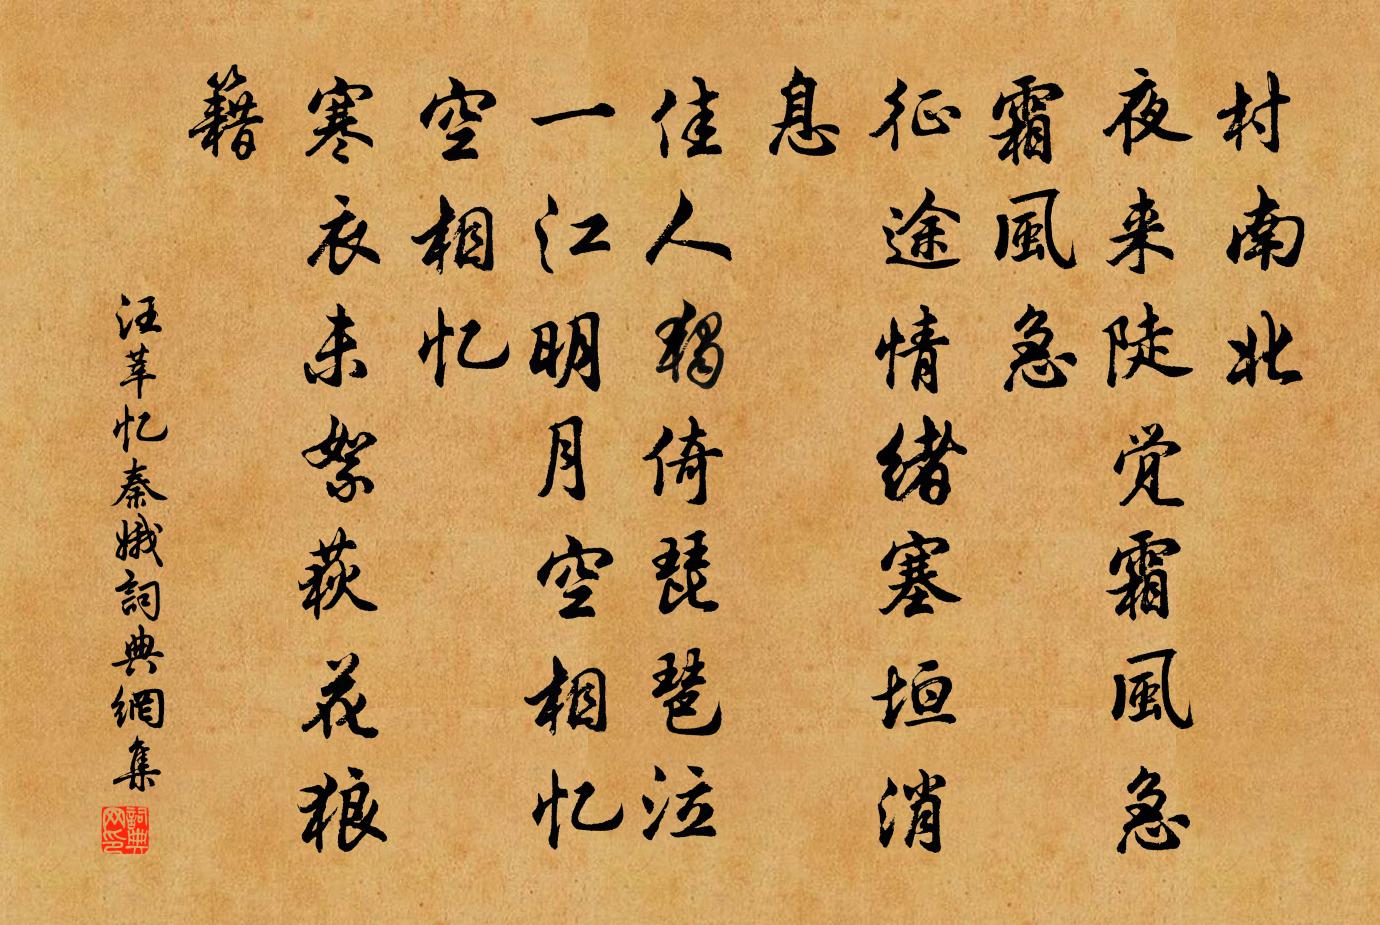 村南北
夜来陡觉霜風急
霜風急
征途情绪塞垣消
息
佳人獨倚琵琶泣
一江明月空相忆
空相忆
寒衣未絮荻花狼
籍
汪莘忆秦娥詞典網集
詞典网印